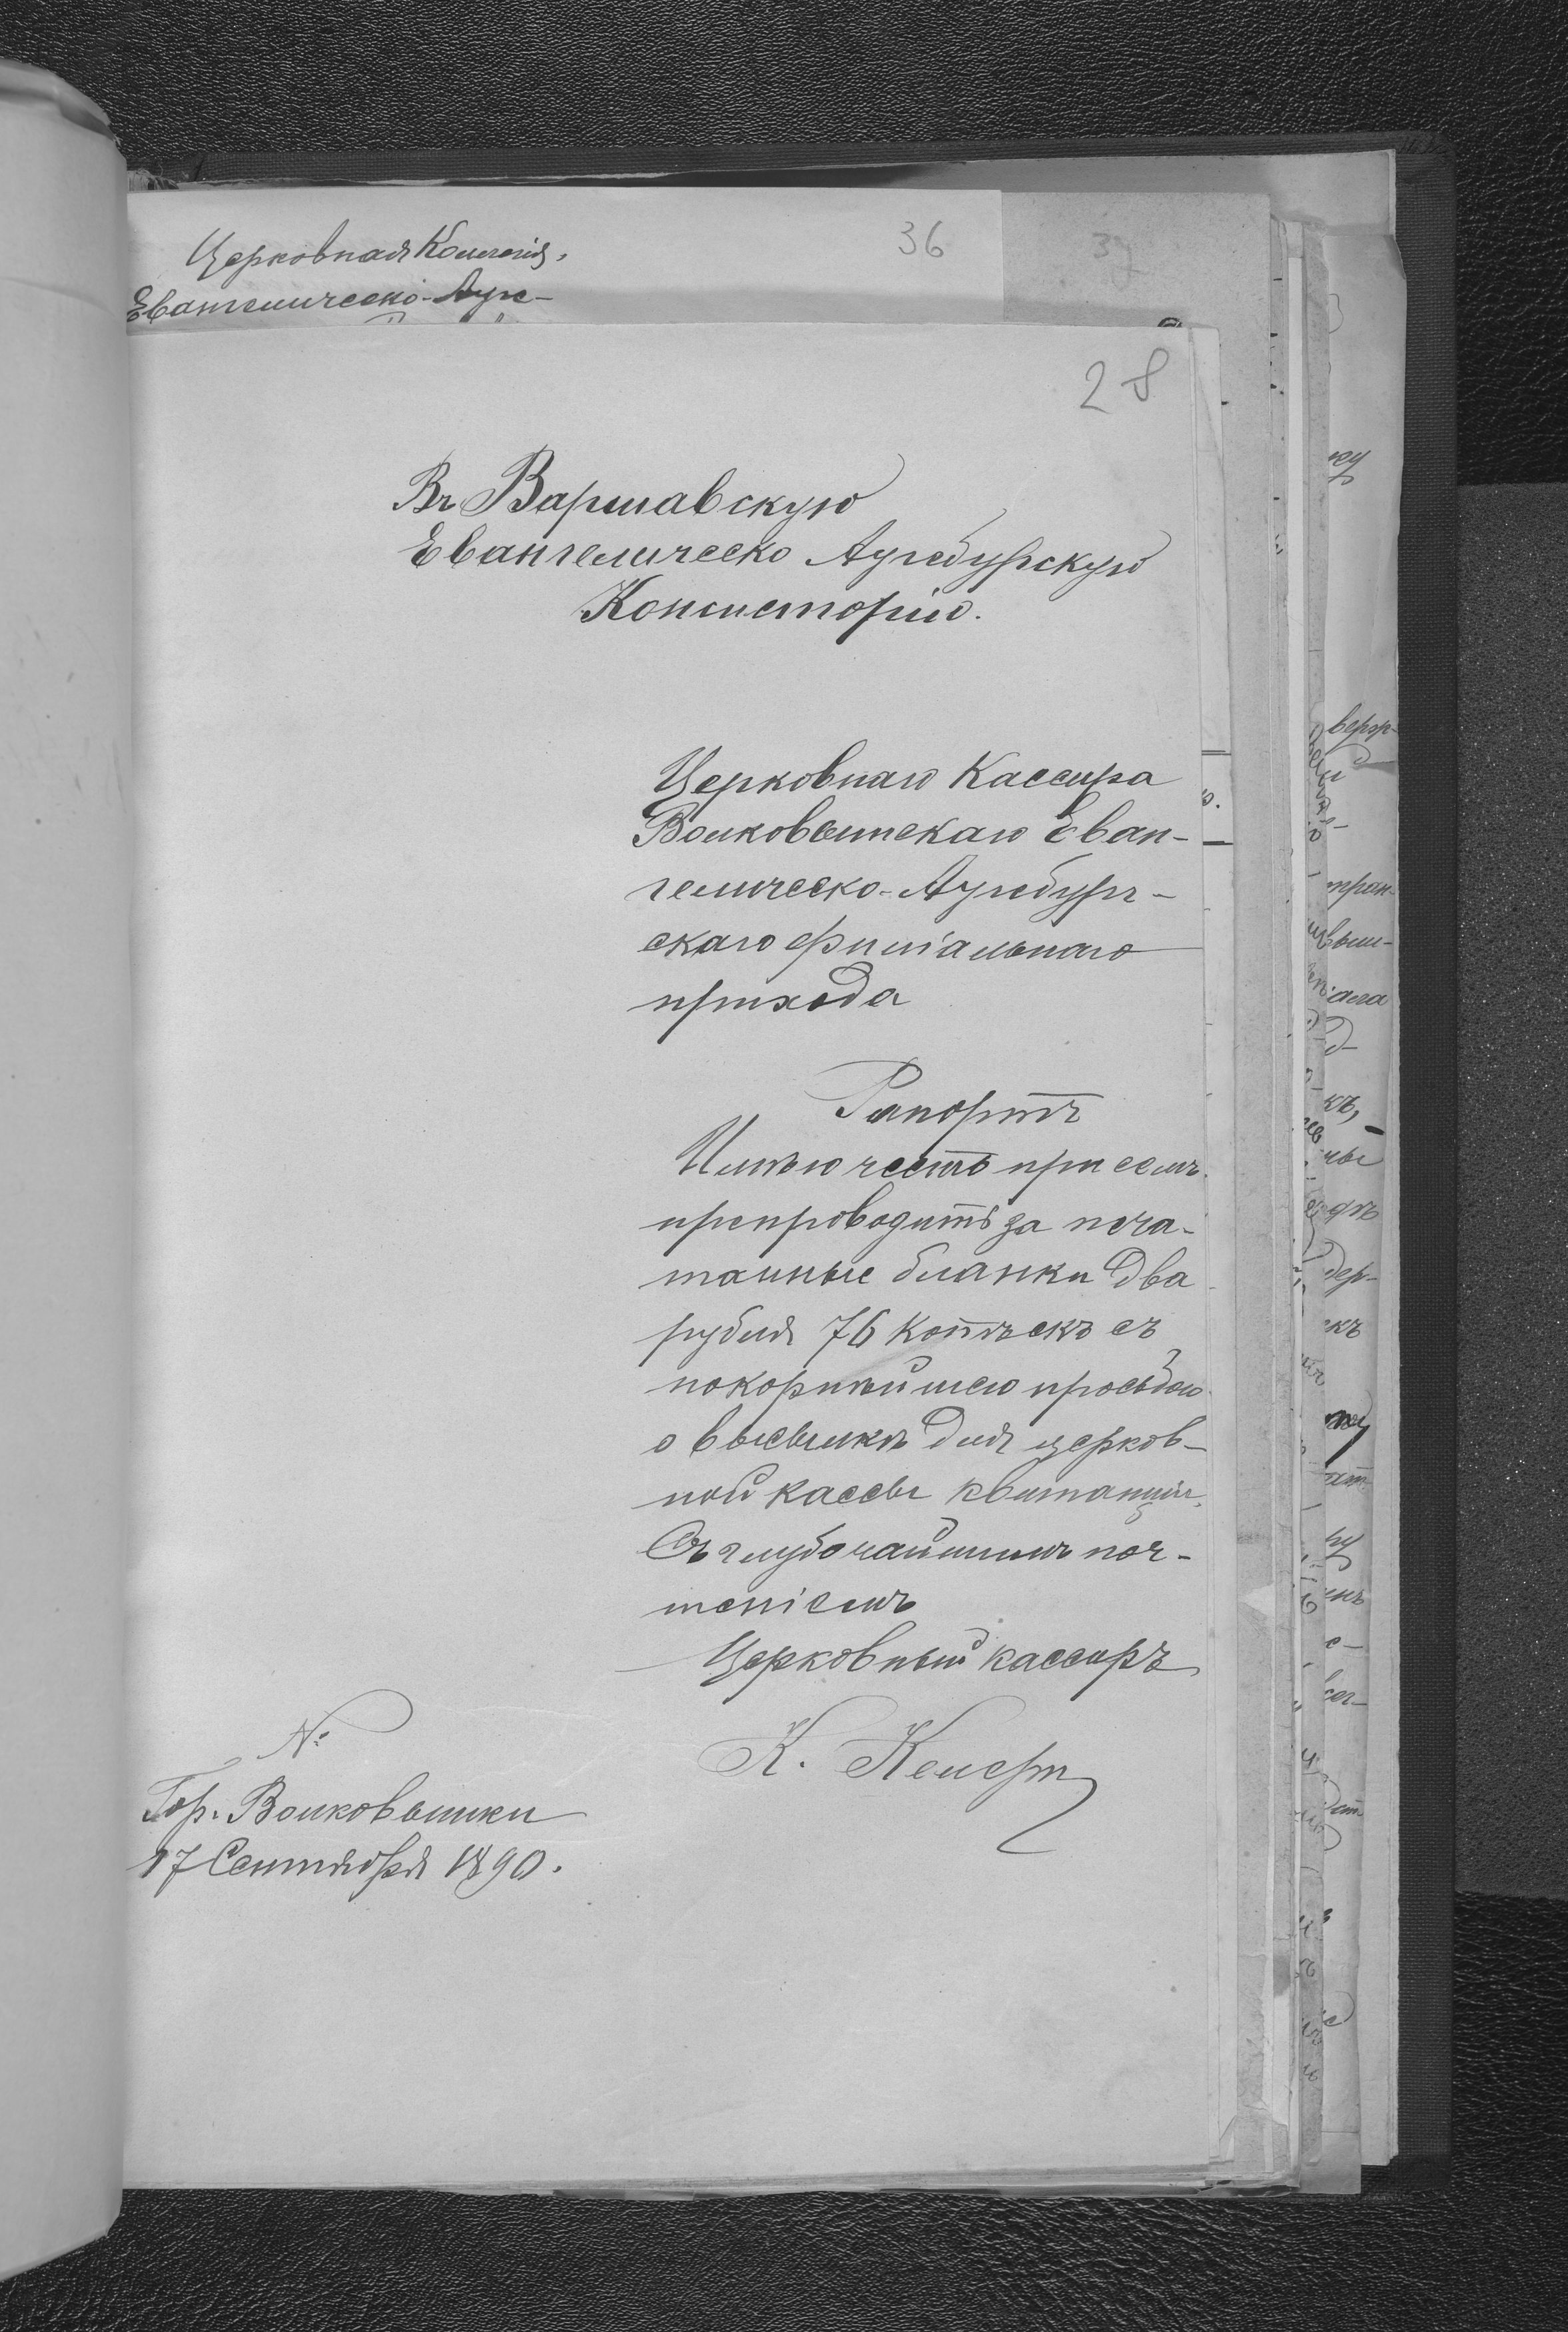 Церковная Коллегія,
Евангелическо-Аугс-
36
37
28
Въ Варшавскую
Евангелическо Аугсбурскую
Консисторію.
Церковнаго Кассира
Волковышскаго Еван-
гелическо-Аугсбург-
скаго филіальнаго
прихода
Рапортъ
Имѣю честь при семъ
препроводить за печа-
танные бланки два
рубля 76 копѣекъ съ
покорнѣйшею просьбою
о высылкѣ для церков-
ной кассы квитанціи.
Съ глубочайшимъ поч-
теніемъ
Церковный кассиръ
К.
№
Гор. Волковышки
17 Сентября 1890.